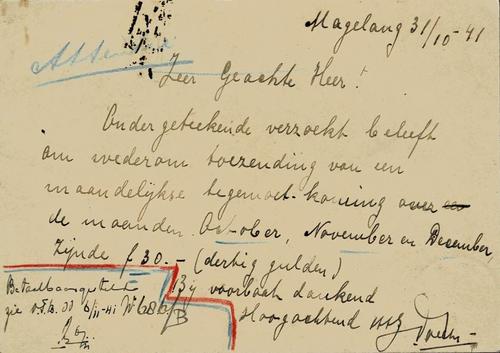 Magelang 31/10-41
Zeer Geachte Heer!
Ondergeteekende verzoekt beleeft
om wederom toezending van een
maandelijkse tegemoet-koming over
de maanden October, November en December,
zijnde f 30.- (dertig gulden)
Bij voorbaat dankend
Hoogachtend
Betaalbaargesteld
zie 6/11-41 No 686/B